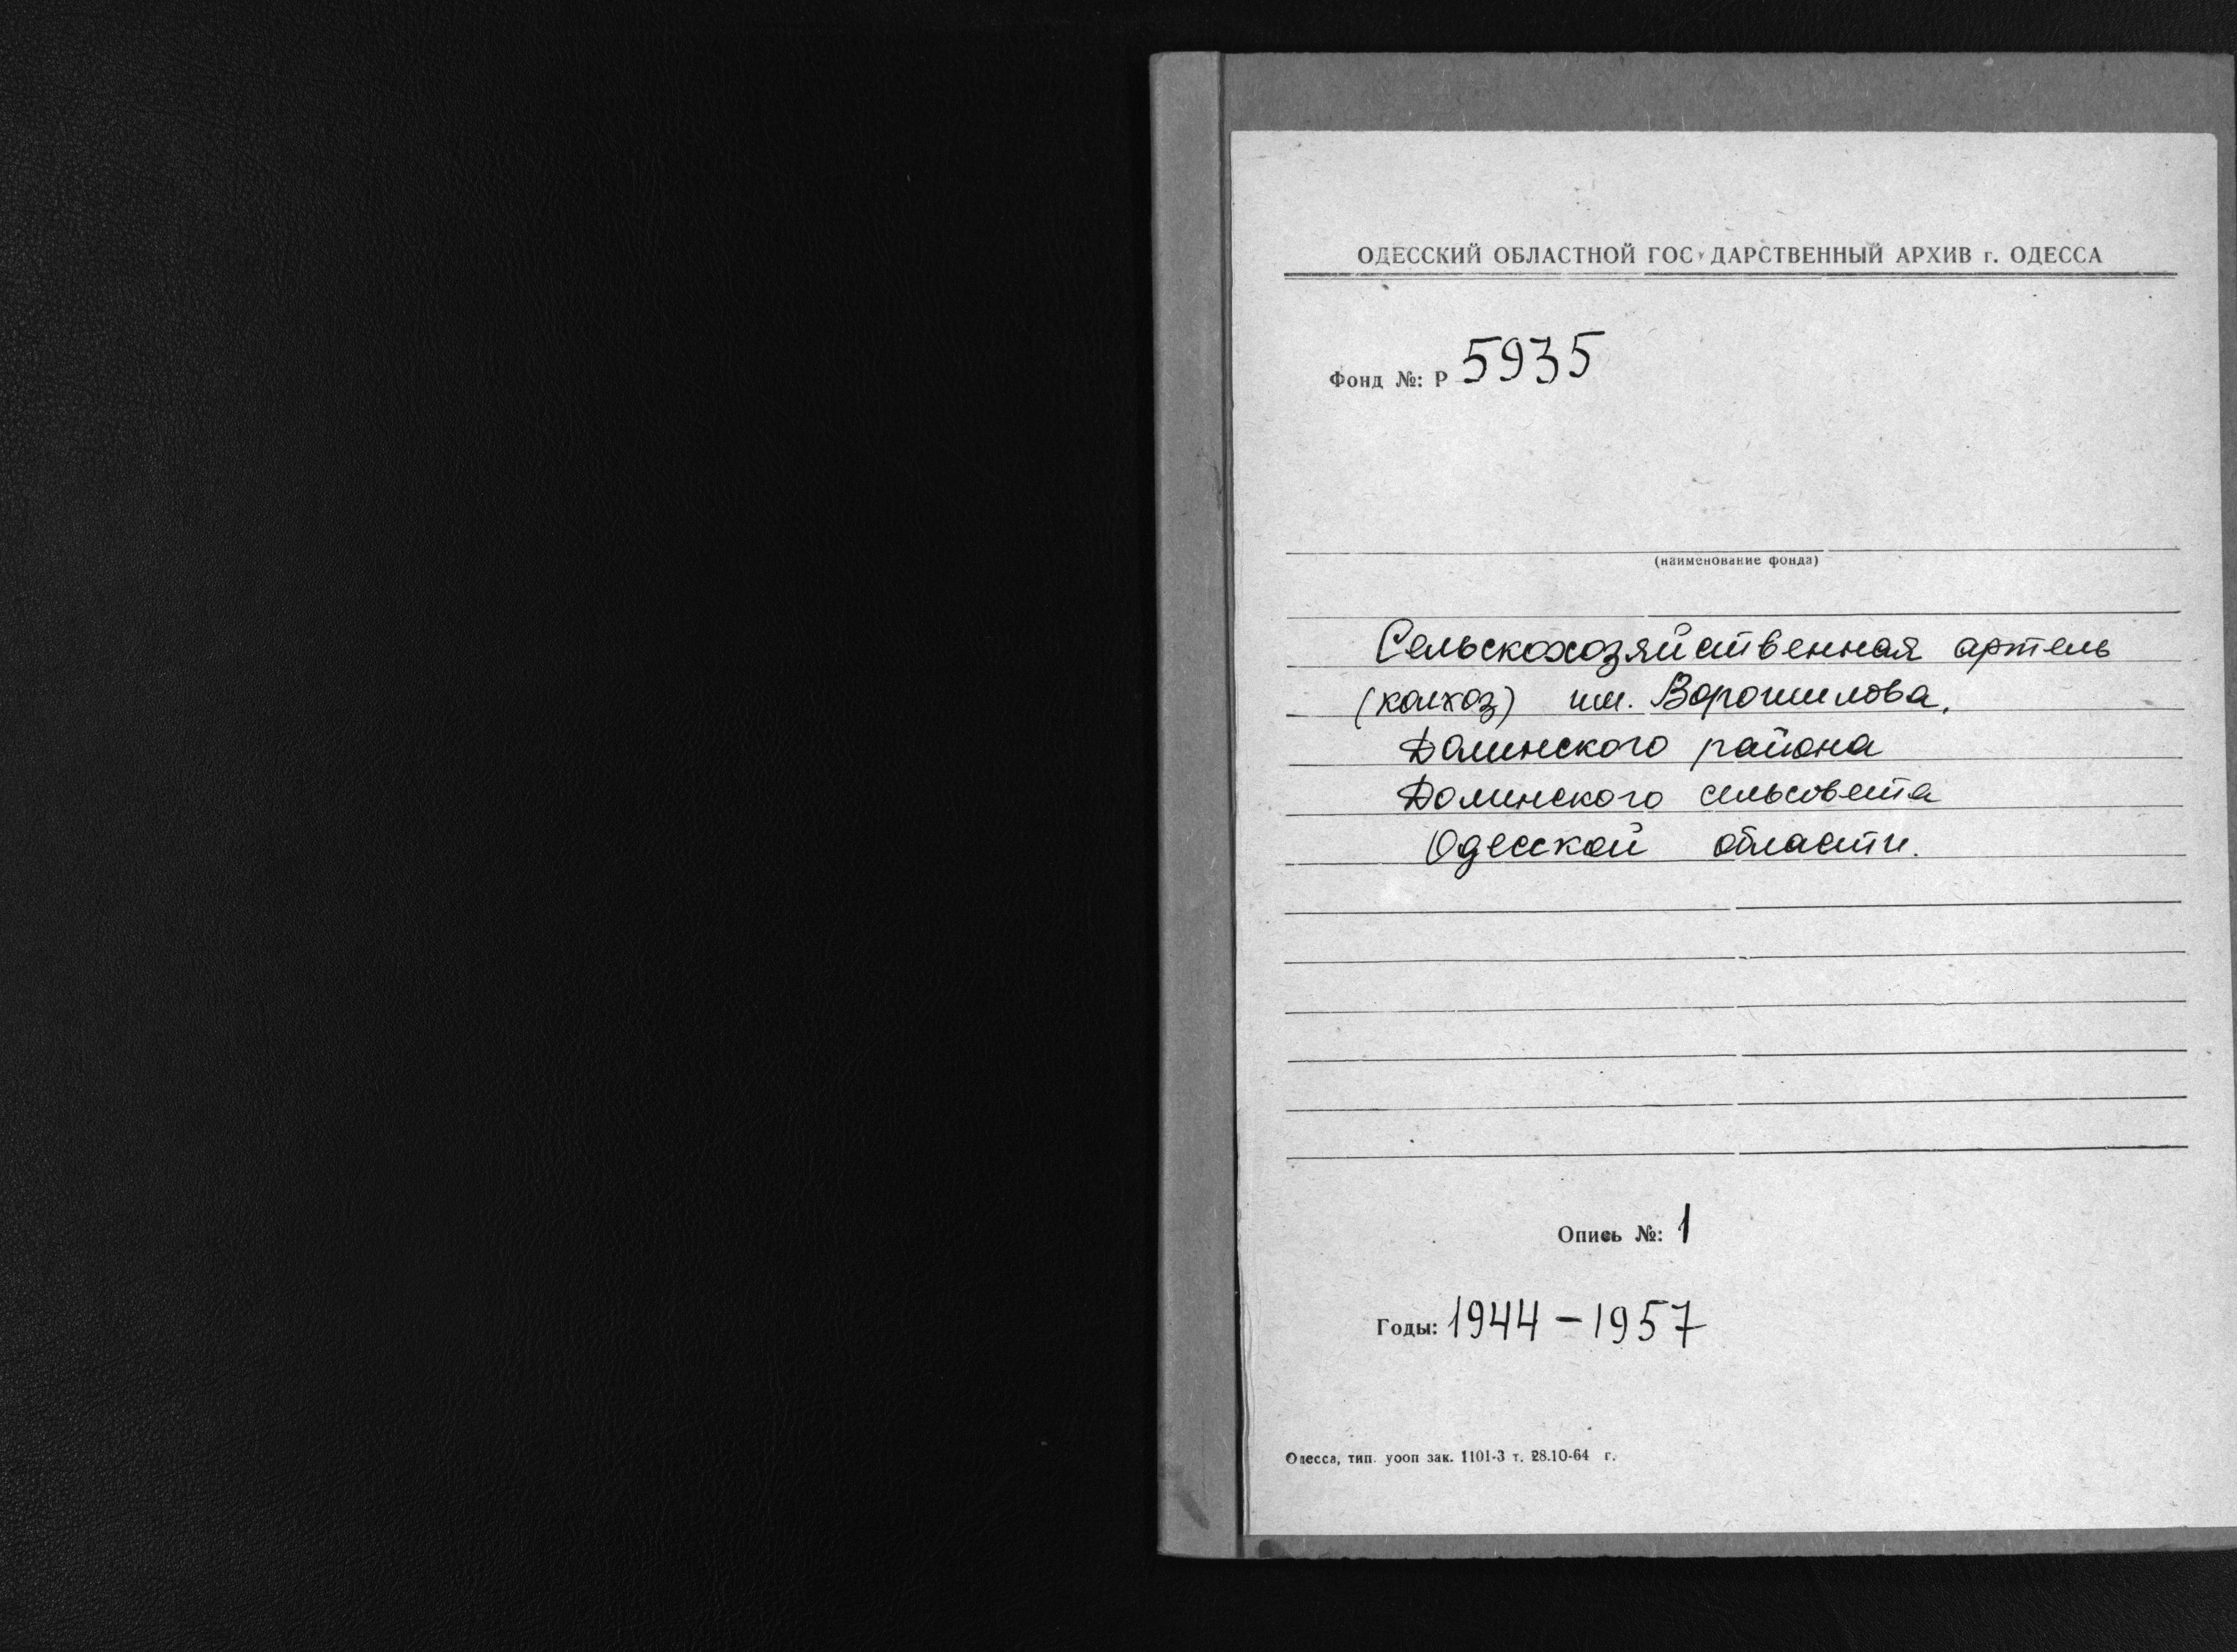 ОДЕССКИЙ ОБЛАСТНОЙ ГОСУДАРСТВЕННЫЙ АРХИВ г. ОДЕССА
Фонд №: Р 5935
(наименование фонда)
Сельскохозяйственная артель
(колхоз) им. Ворошилова,
Долинского района
Долинского сельсовета
Одесской области.
Опись №: 1
Годы: 1944 – 1957
Одесса, тип. уооп зак. 1101-3 т. 28.10-64 г.